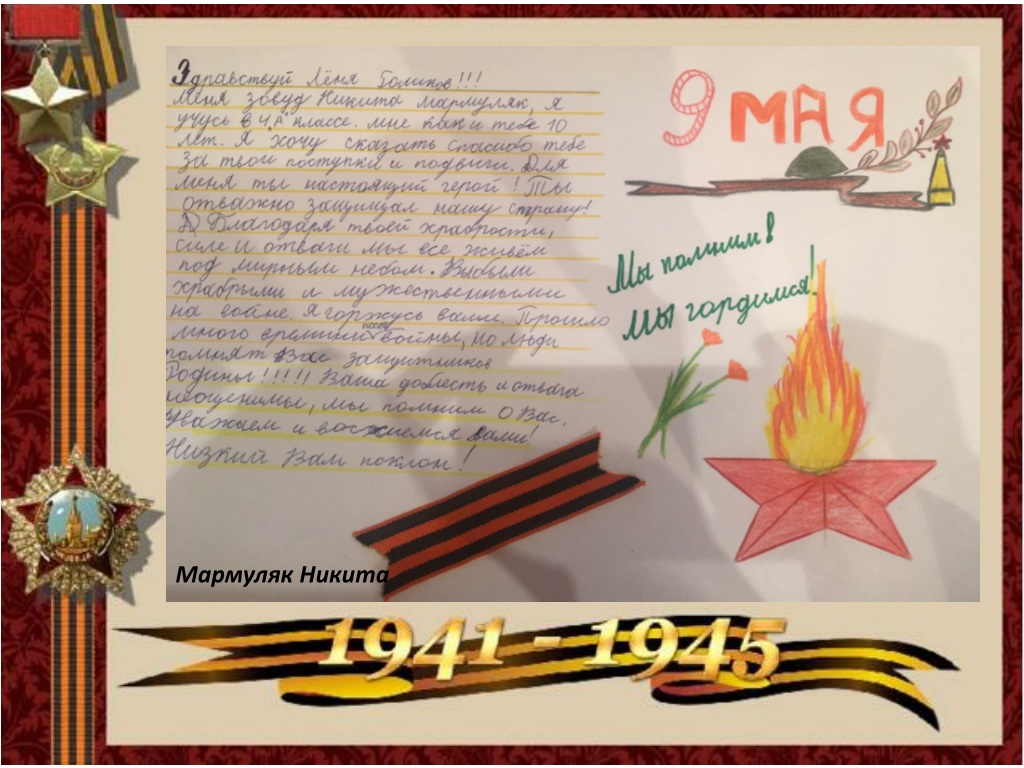 Здравствуй Лёня Голиков!!!
Меня зовуд Никита Мармуляк, я
учусь в 4 "А" классе. мне как и тебе 10
лет. Я хочу сказать спасибо тебе
за твои поступки и подвиги. Для
меня ты настоящий герой! Ты
отважно защищал нашу страну!
Благодаря твоей храбрости,
силе и отваги мы все живём
под мирным небом. Вы были
храбрыми и мужественными
на войне. Я горжусь вами. Прошло
много времини после войны, но люди
помнят Вас защитников
Родины!!!!! Ваша доблесть и отвага
неоценимы, мы помним О Вас.
Уважаем и восхищемся Вами!
Низкий Вам поклон!
9 МАЯ
Мы помним!
Мы гордимся!
Мармуляк Никита
1941 - 1945